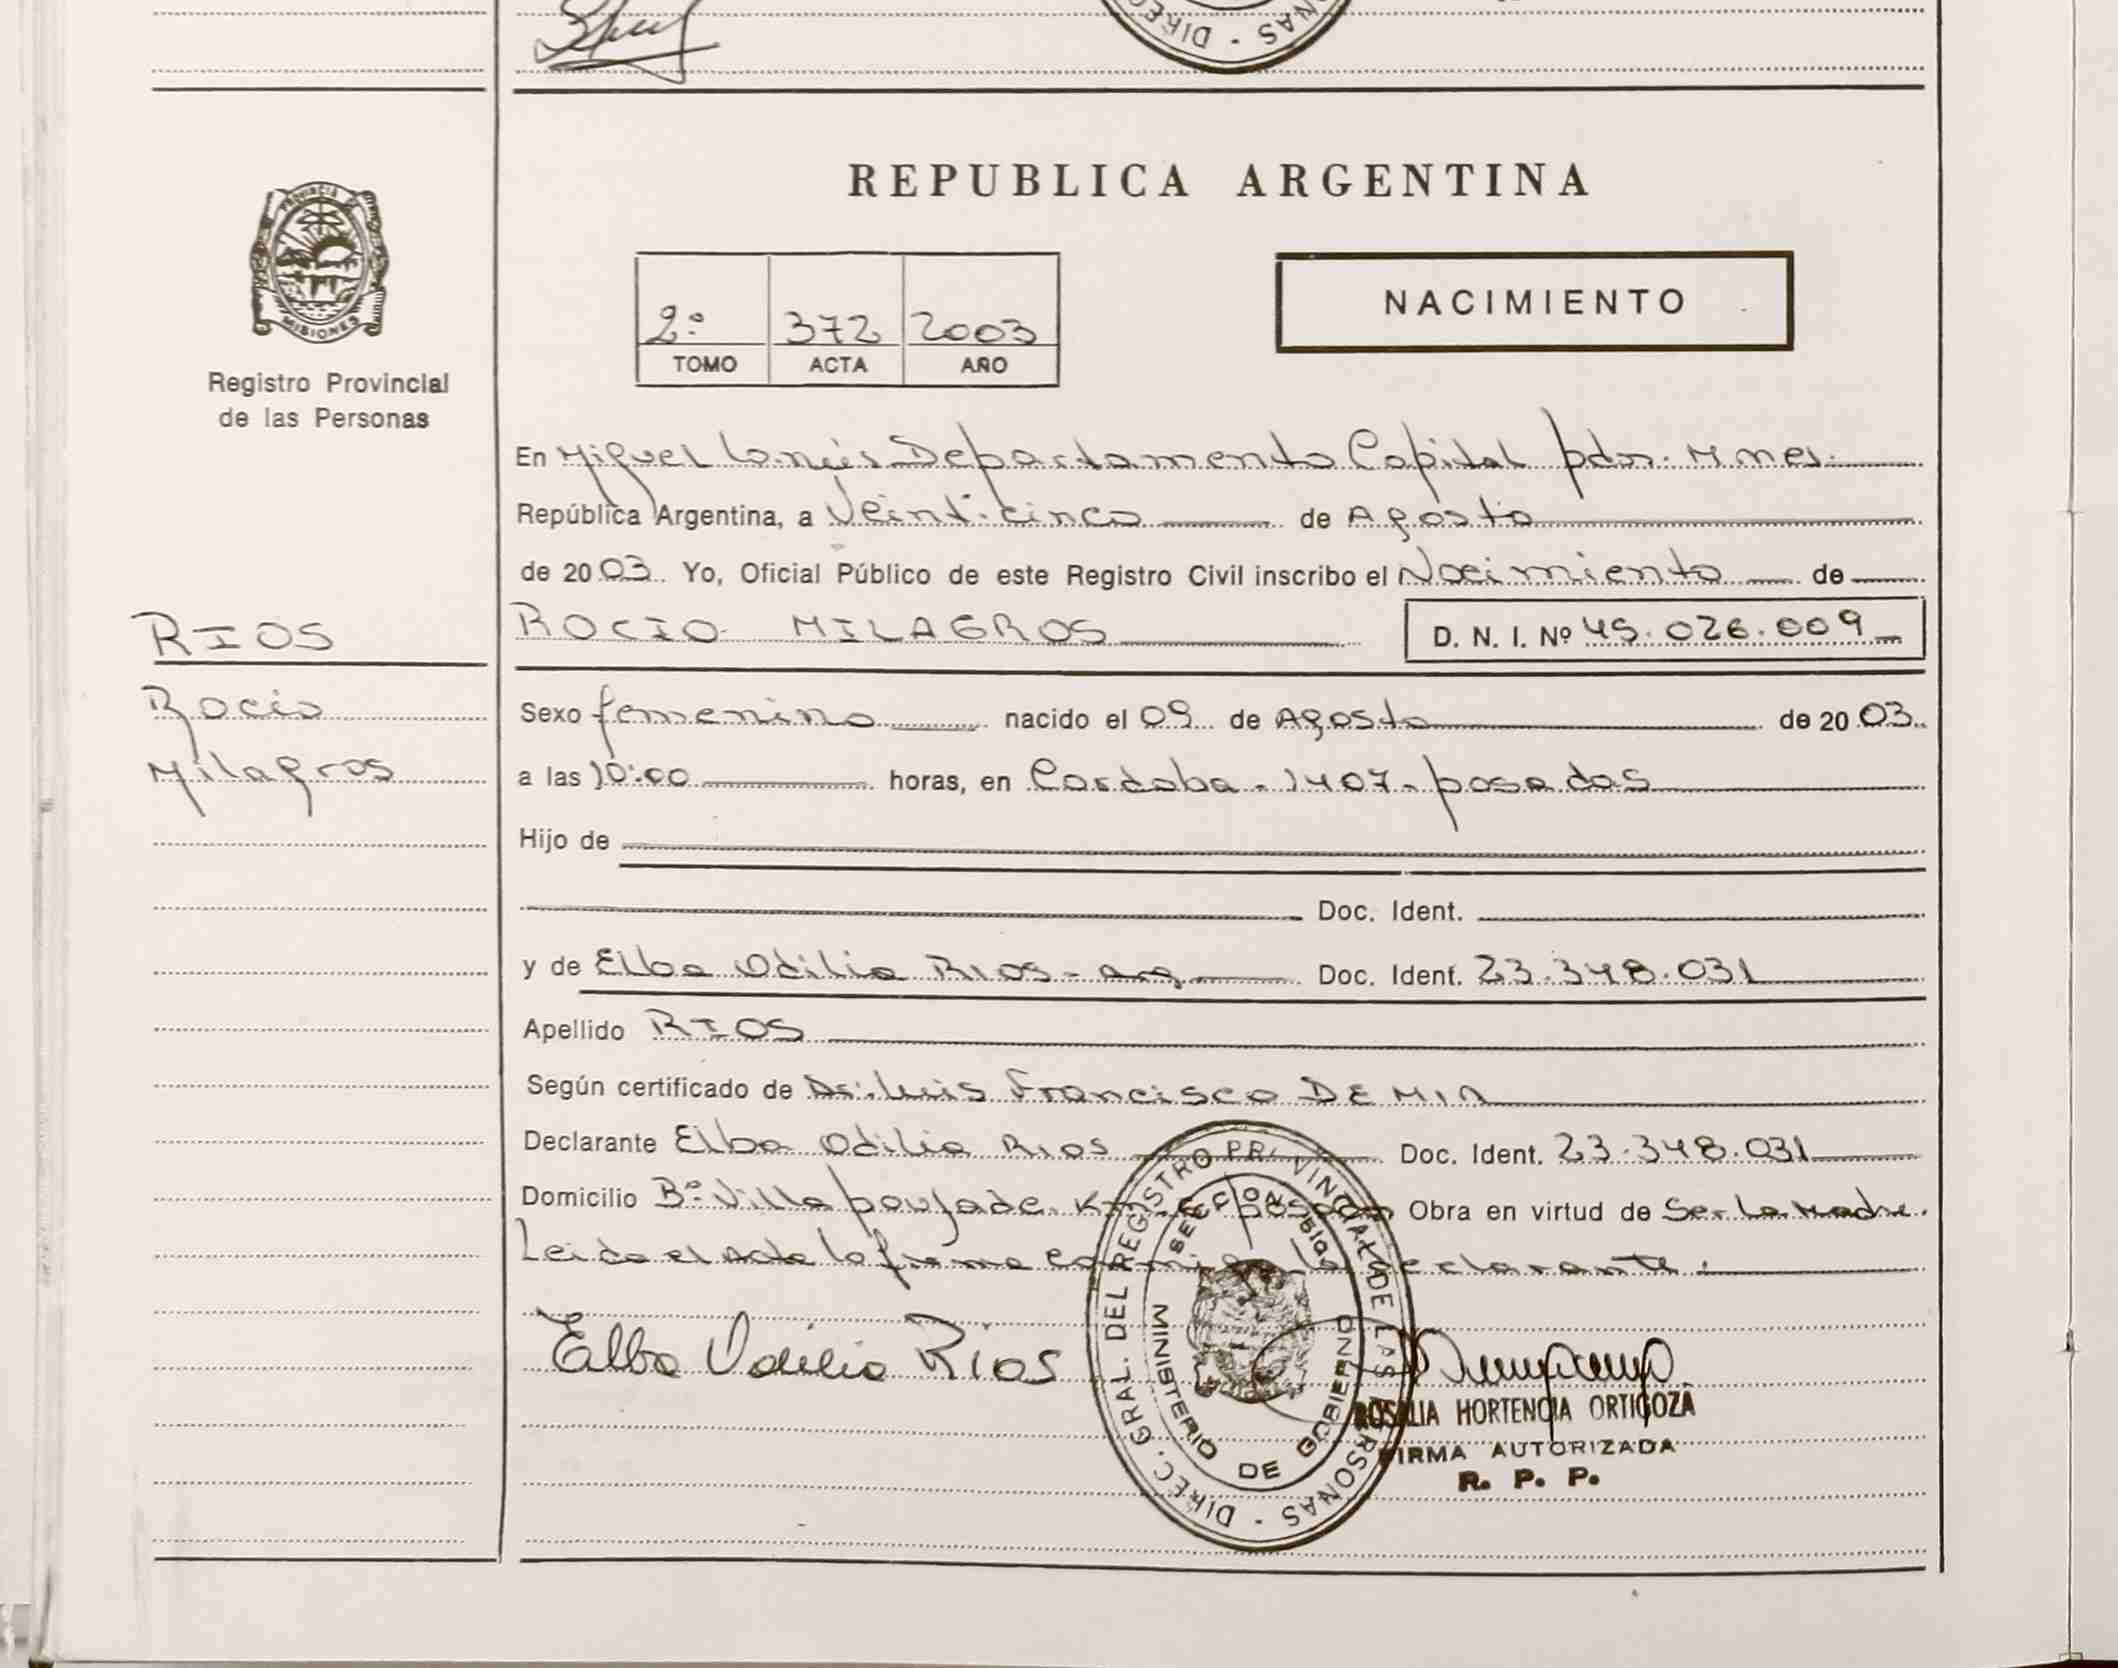 DIREC - SONAS
REPUBLICA ARGENTINA
PROVINCIA DE MISIONES
Registro Provincial
de las Personas
2º 372 2003
TOMO ACTA AÑO
NACIMIENTO
En Miguel Lanús Departamento Capital pdas. Mnes.
República Argentina, a Veinticinco de Agosto
de 2003 Yo, Oficial Público de este Registro Civil inscribo el Nacimiento de
RIOS
Rocio
Milagros
ROCIO MILAGROS D. N. I. Nº 45.026.009
Sexo femenino nacido el 09 de Agosto de 2003
a las 10:00 horas, en Cordoba - 1407 - posadas
Hijo de
Doc. Ident.
y de Elba Odilia RIOS - arg. Doc. Ident. 23.348.031
Apellido RIOS
Según certificado de Dr. Luis Francisco DE MIN
Declarante Elba Odilia Rios Doc. Ident. 23.348.031
Domicilio Bº Villa poujade posadas Obra en virtud de Ser La Madre.
Leida el Acta la firma conmigo la declarante.
Elba Odilia Rios
DIREC. GRAL. DEL REGISTRO PROVINCIAL DE LAS PERSONAS
MINISTERIO DE GOBIERNO
ROSALIA HORTENCIA ORTIGOZA
FIRMA AUTORIZADA
R. P. P.